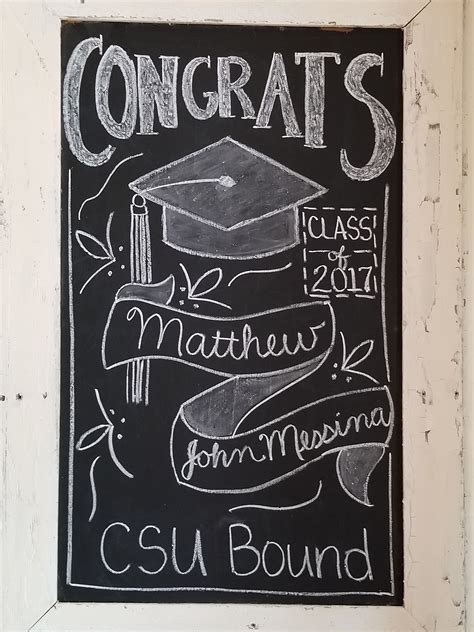 CONGRATS
CLASS
of
2017
Matthew
John Messina
CSU Bound